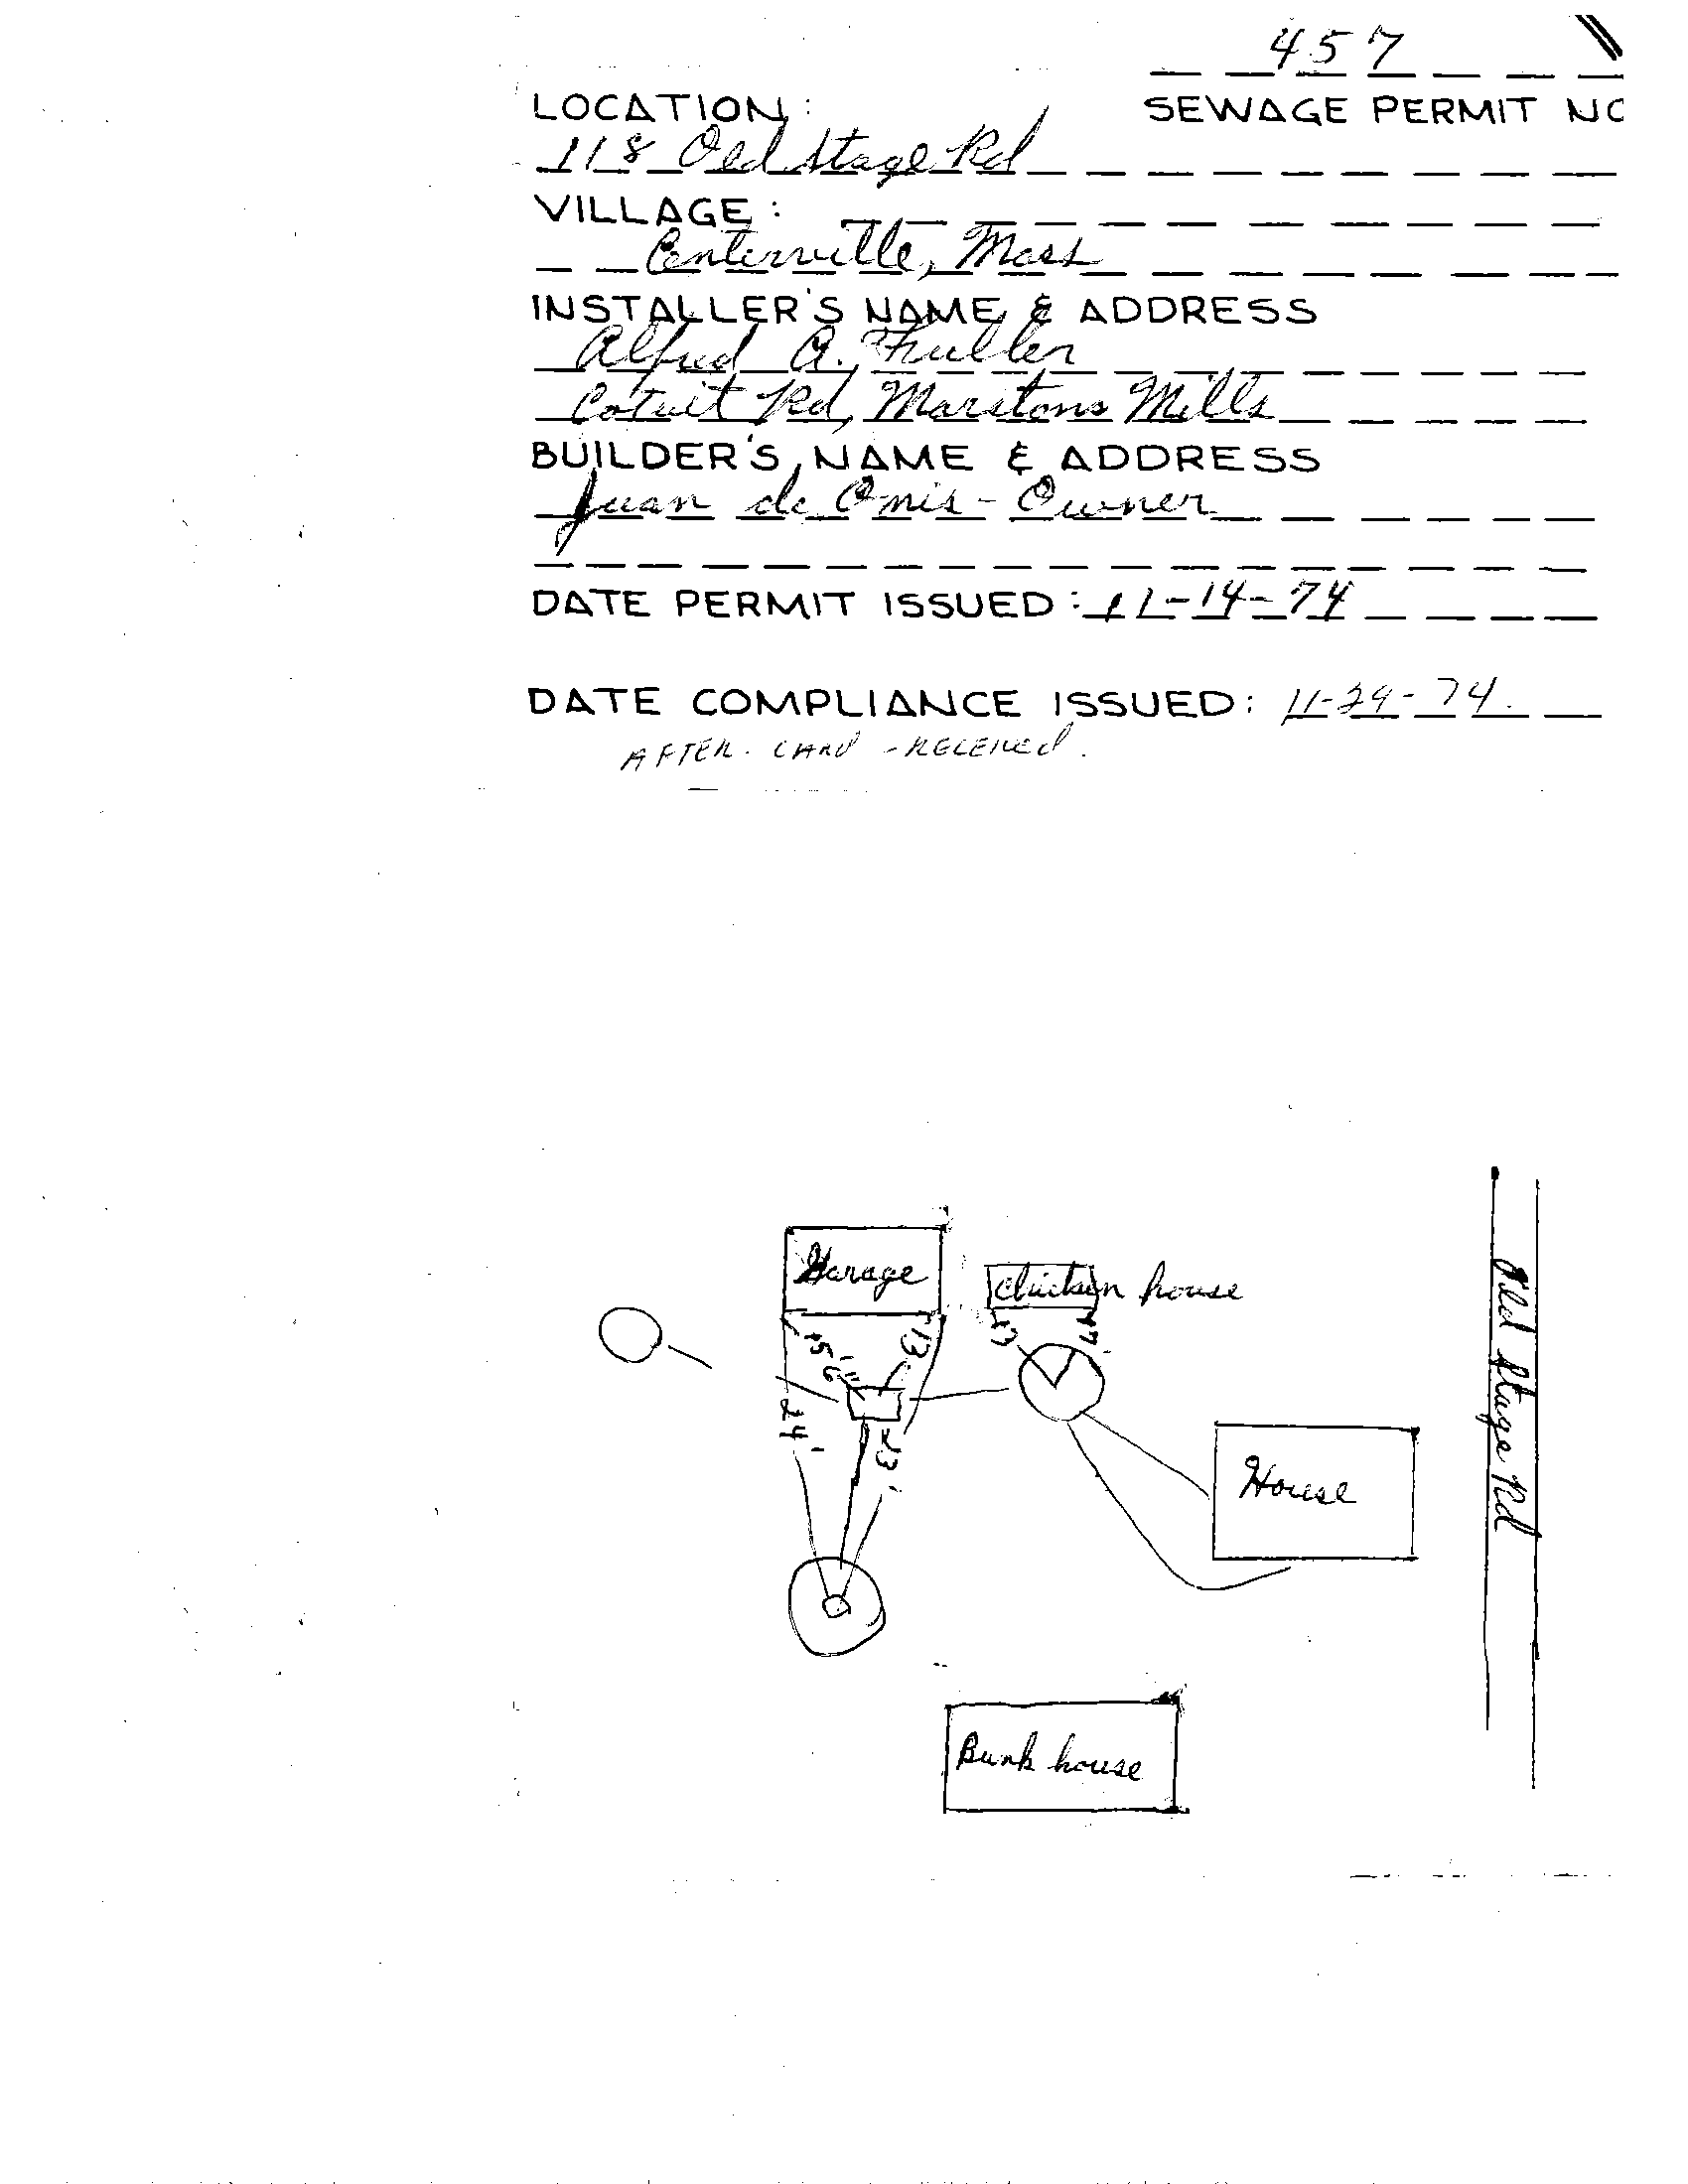 457
SEWAGE PERMIT NO
LOCATION:
118 Old Stage Rd
VILLAGE:
Centerville, Mass
INSTALLER'S NAME & ADDRESS
Alfred A. Fuller
Cotuit Rd, Marstons Mills
BUILDER'S NAME & ADDRESS
Juan de Onis - Owner
DATE PERMIT ISSUED: 11-14-74
DATE COMPLIANCE ISSUED: 11-29-74.
AFTER. CARD - RECEIVED.
Garage
Chicken house
13'
24'
23'
House
Old Stage Rd
Bunk house